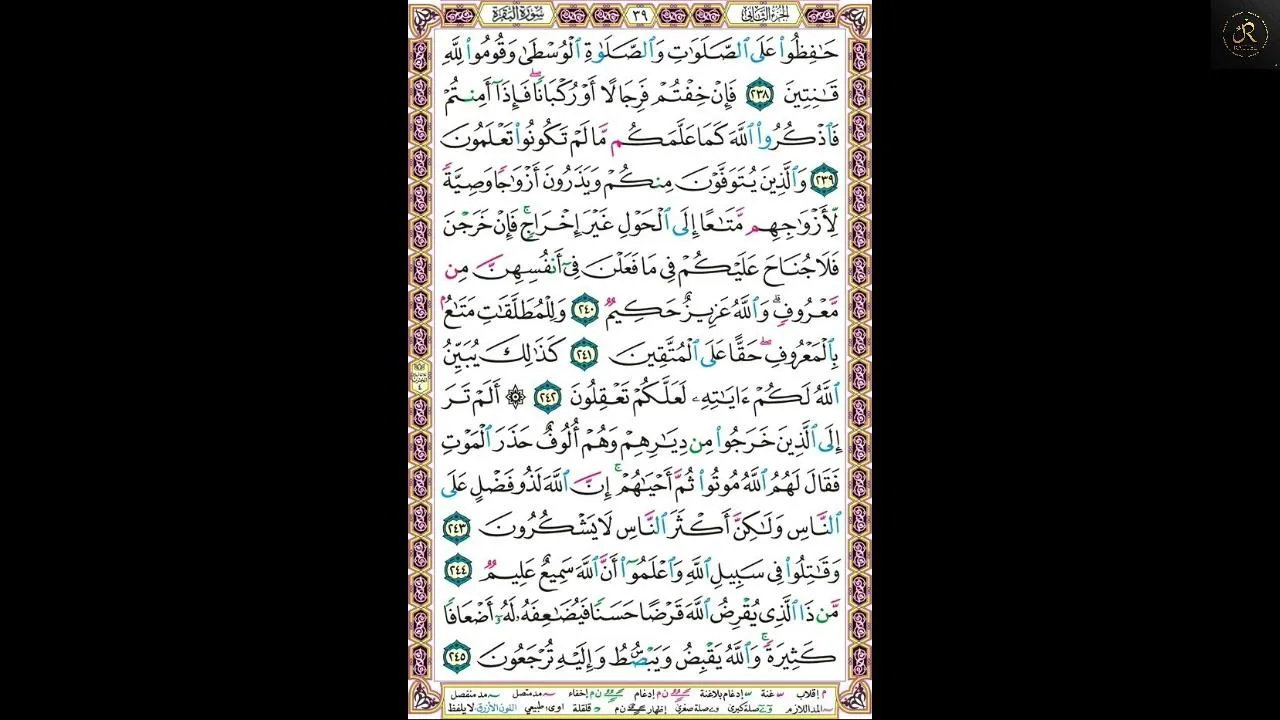 الجزء الثاني ٣٩ سورة البقرة
حَٰفِظُوا۟ عَلَى ٱلصَّلَوَٰتِ وَٱلصَّلَوٰةِ ٱلْوُسْطَىٰ وَقُومُوا۟ لِلَّهِ
قَٰنِتِينَ ٢٣٨ فَإِنْ خِفْتُمْ فَرِجَالًا أَوْ رُكْبَانًا ۖ فَإِذَآ أَمِنتُمْ
فَٱذْكُرُوا۟ ٱللَّهَ كَمَا عَلَّمَكُم مَّا لَمْ تَكُونُوا۟ تَعْلَمُونَ
٢٣٩ وَٱلَّذِينَ يُتَوَفَّوْنَ مِنكُمْ وَيَذَرُونَ أَزْوَٰجًا وَصِيَّةً
لِّأَزْوَٰجِهِم مَّتَٰعًا إِلَى ٱلْحَوْلِ غَيْرَ إِخْرَاجٍ ۚ فَإِنْ خَرَجْنَ
فَلَا جُنَاحَ عَلَيْكُمْ فِى مَا فَعَلْنَ فِىٓ أَنفُسِهِنَّ مِن
مَّعْرُوفٍ ۗ وَٱللَّهُ عَزِيزٌ حَكِيمٌ ٢٤٠ وَلِلْمُطَلَّقَٰتِ مَتَٰعٌۢ
بِٱلْمَعْرُوفِ ۖ حَقًّا عَلَى ٱلْمُتَّقِينَ ٢٤١ كَذَٰلِكَ يُبَيِّنُ
ٱللَّهُ لَكُمْ ءَايَٰتِهِۦ لَعَلَّكُمْ تَعْقِلُونَ ٢٤٢ ۞ أَلَمْ تَرَ
إِلَى ٱلَّذِينَ خَرَجُوا۟ مِن دِيَٰرِهِمْ وَهُمْ أُلُوفٌ حَذَرَ ٱلْمَوْتِ
فَقَالَ لَهُمُ ٱللَّهُ مُوتُوا۟ ثُمَّ أَحْيَٰهُمْ ۚ إِنَّ ٱللَّهَ لَذُو فَضْلٍ عَلَى
ٱلنَّاسِ وَلَٰكِنَّ أَكْثَرَ ٱلنَّاسِ لَا يَشْكُرُونَ ٢٤٣
وَقَٰتِلُوا۟ فِى سَبِيلِ ٱللَّهِ وَٱعْلَمُوٓا۟ أَنَّ ٱللَّهَ سَمِيعٌ عَلِيمٌ ٢٤٤
مَّن ذَا ٱلَّذِى يُقْرِضُ ٱللَّهَ قَرْضًا حَسَنًا فَيُضَٰعِفَهُۥ لَهُۥٓ أَضْعَافًا
كَثِيرَةً ۚ وَٱللَّهُ يَقْبِضُ وَيَبْصُۜطُ وَإِلَيْهِ تُرْجَعُونَ ٢٤٥
م إقلاب س غنة إدغام بلاغنة ن م إدغام ن م إخفاء مد متصل مد منفصل
المد اللازم صلة كبرى صلة صغرى إظهار ن م قلقلة اوى طبيعي اللون الأزرق لا يلفظ